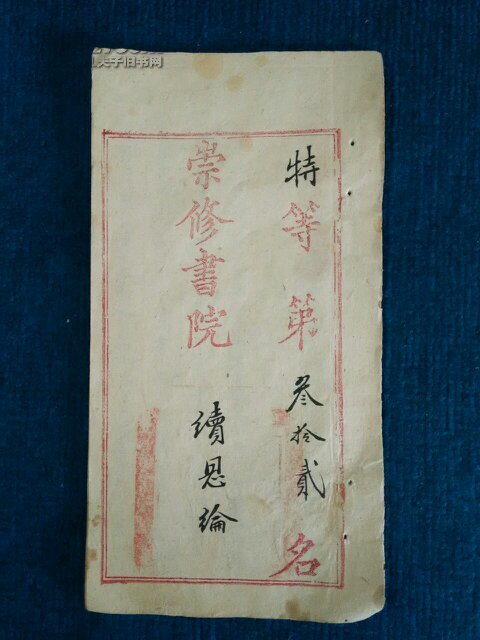 特等第叁拾貳名
崇修書院
續恩綸
夫子旧书网